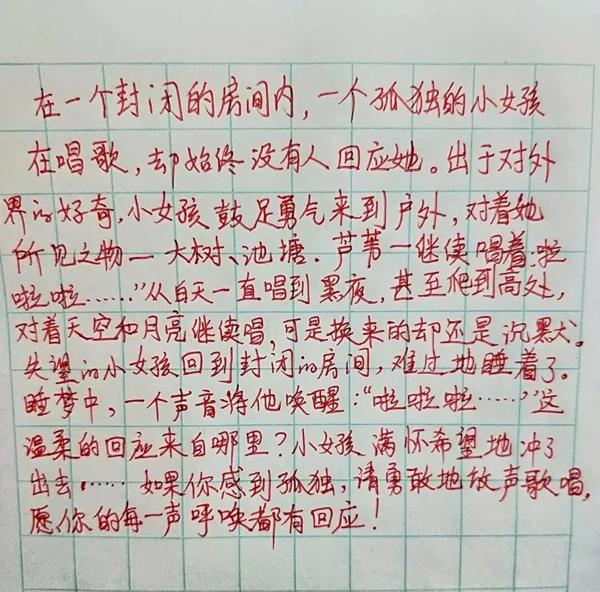 在一个封闭的房间内，一个孤独的小女孩
在唱歌，却始终没有人回应她。出于对外
界的好奇，小女孩鼓足勇气来到户外，对着她
所见之物一大树、池塘．芦苇一继续唱着：啦
啦啦……”从白天一直唱到黑夜，甚至爬到高处，
对着天空和月亮继续唱，可是换来的却还是沉默。
失望的小女孩回到封闭的房间，难过地睡着了。
睡梦中，一个声音将他唤醒：“啦啦啦……”这
温柔的回应来自哪里？小女孩满怀希望地冲了
出去……如果你感到孤独，请勇敢地放声歌唱，
愿你的每一声呼唤都有回应！